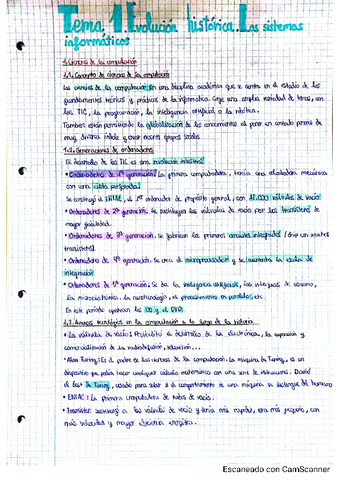 Tema 1. Evolución histórica. Los sistemas
informáticos
1. Ciencias de la computación
1.1. Concepto de ciencias de la computación
Las ciencias de la computación son una disciplina académica que se centra en el estudio de los
fundamentos teóricos y prácticos de la informática. Coge una amplia variedad de temas, con
las TIC, la programación, la inteligencia artificial o la robótica.
También están permitiendo la globalización de los conocimientos al poner en contacto gente de
muy diversa índole y crear nuevos grupos sociales
1.2. Generaciones de ordenadores
El desarrollo de las TIC es una revolución industrial
• Ordenadores de 1ª generación: La primera computadora, tenía una calculadora mecánica
con una cinta perforada
Se construyó el ENIAC, el 1er ordenador de propósito general, con 17.000 válvulas de vacío
• Ordenadores de 2ª generación, se sustituyen las válvulas de vacío por los transistores de
mayor fiabilidad.
• Ordenadores de 3ª generación, se fabrican los primeros circuitos integrados (chip con muchos
transistores).
• Ordenadores de 4ª generación, Se crea el microprocesador y se aumenta la escala de
integración
• Ordenadores de 5ª generación, Se da la inteligencia artificial, los sistemas de consumo,
la microelectrónica, el procesamiento en paralelo, etc
En este periodo aparecen los CD y el DVD
1.3. Avances tecnológicos en la computación a lo largo de la historia
• La válvula de vacío: Permitió el desarrollo de la electrónica, la expansión y
comercialización de la radiodifusión, televisión...
• Alan Turing: Es el padre de las ciencias de la computación. La máquina de Turing, es un
dispositivo que podía hacer cualquier cálculo matemático con una serie de instrucciones. Diseñó
el test de Turing, usado para saber si el comportamiento de una máquina se distingue del humano
• ENIAC: La primera computadora de tubos de vacío.
• Transistor: sustituyó a las válvulas de vacío y tenía más rapidez, era más pequeño, con
más válvulas y mayor eficiencia energética.
Escaneado con CamScanner